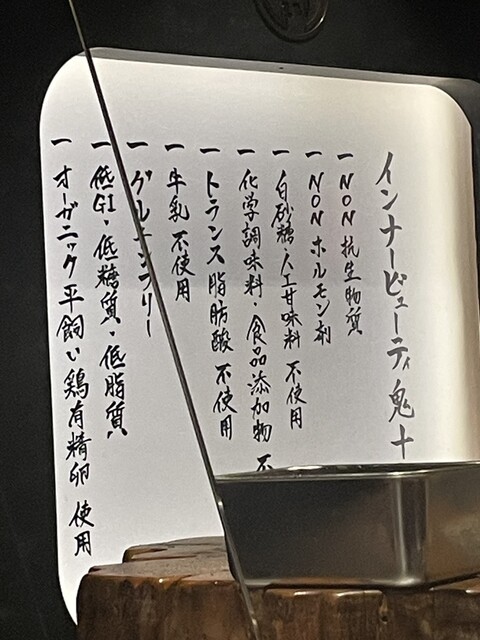 インナービューティ鬼十
一 NON 抗生物質
一 NON ホルモン剤
一 白砂糖・人工甘味料 不使用
一 化学調味料・食品添加物 不
一 トランス脂肪酸 不使用
一 牛乳 不使用
一 グルテンフリー
一 低GI・低糖質・低脂質
一 オーガニック平飼い鶏有精卵 使用